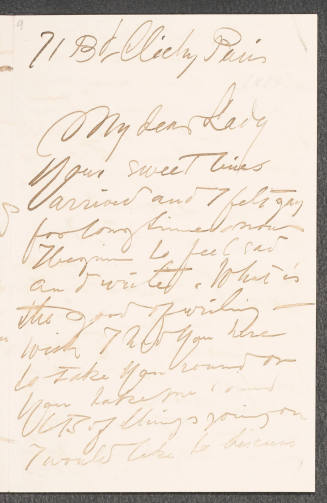 9
71 Bd Clichy Paris
My dear Lady
Your sweet lines
arrived and I felt gay
for long time & now
I begin to feel sad
and write. What is
the good of writing –
wish I had you here
to take you round or
you take me round
of things going on
I would like to discuss